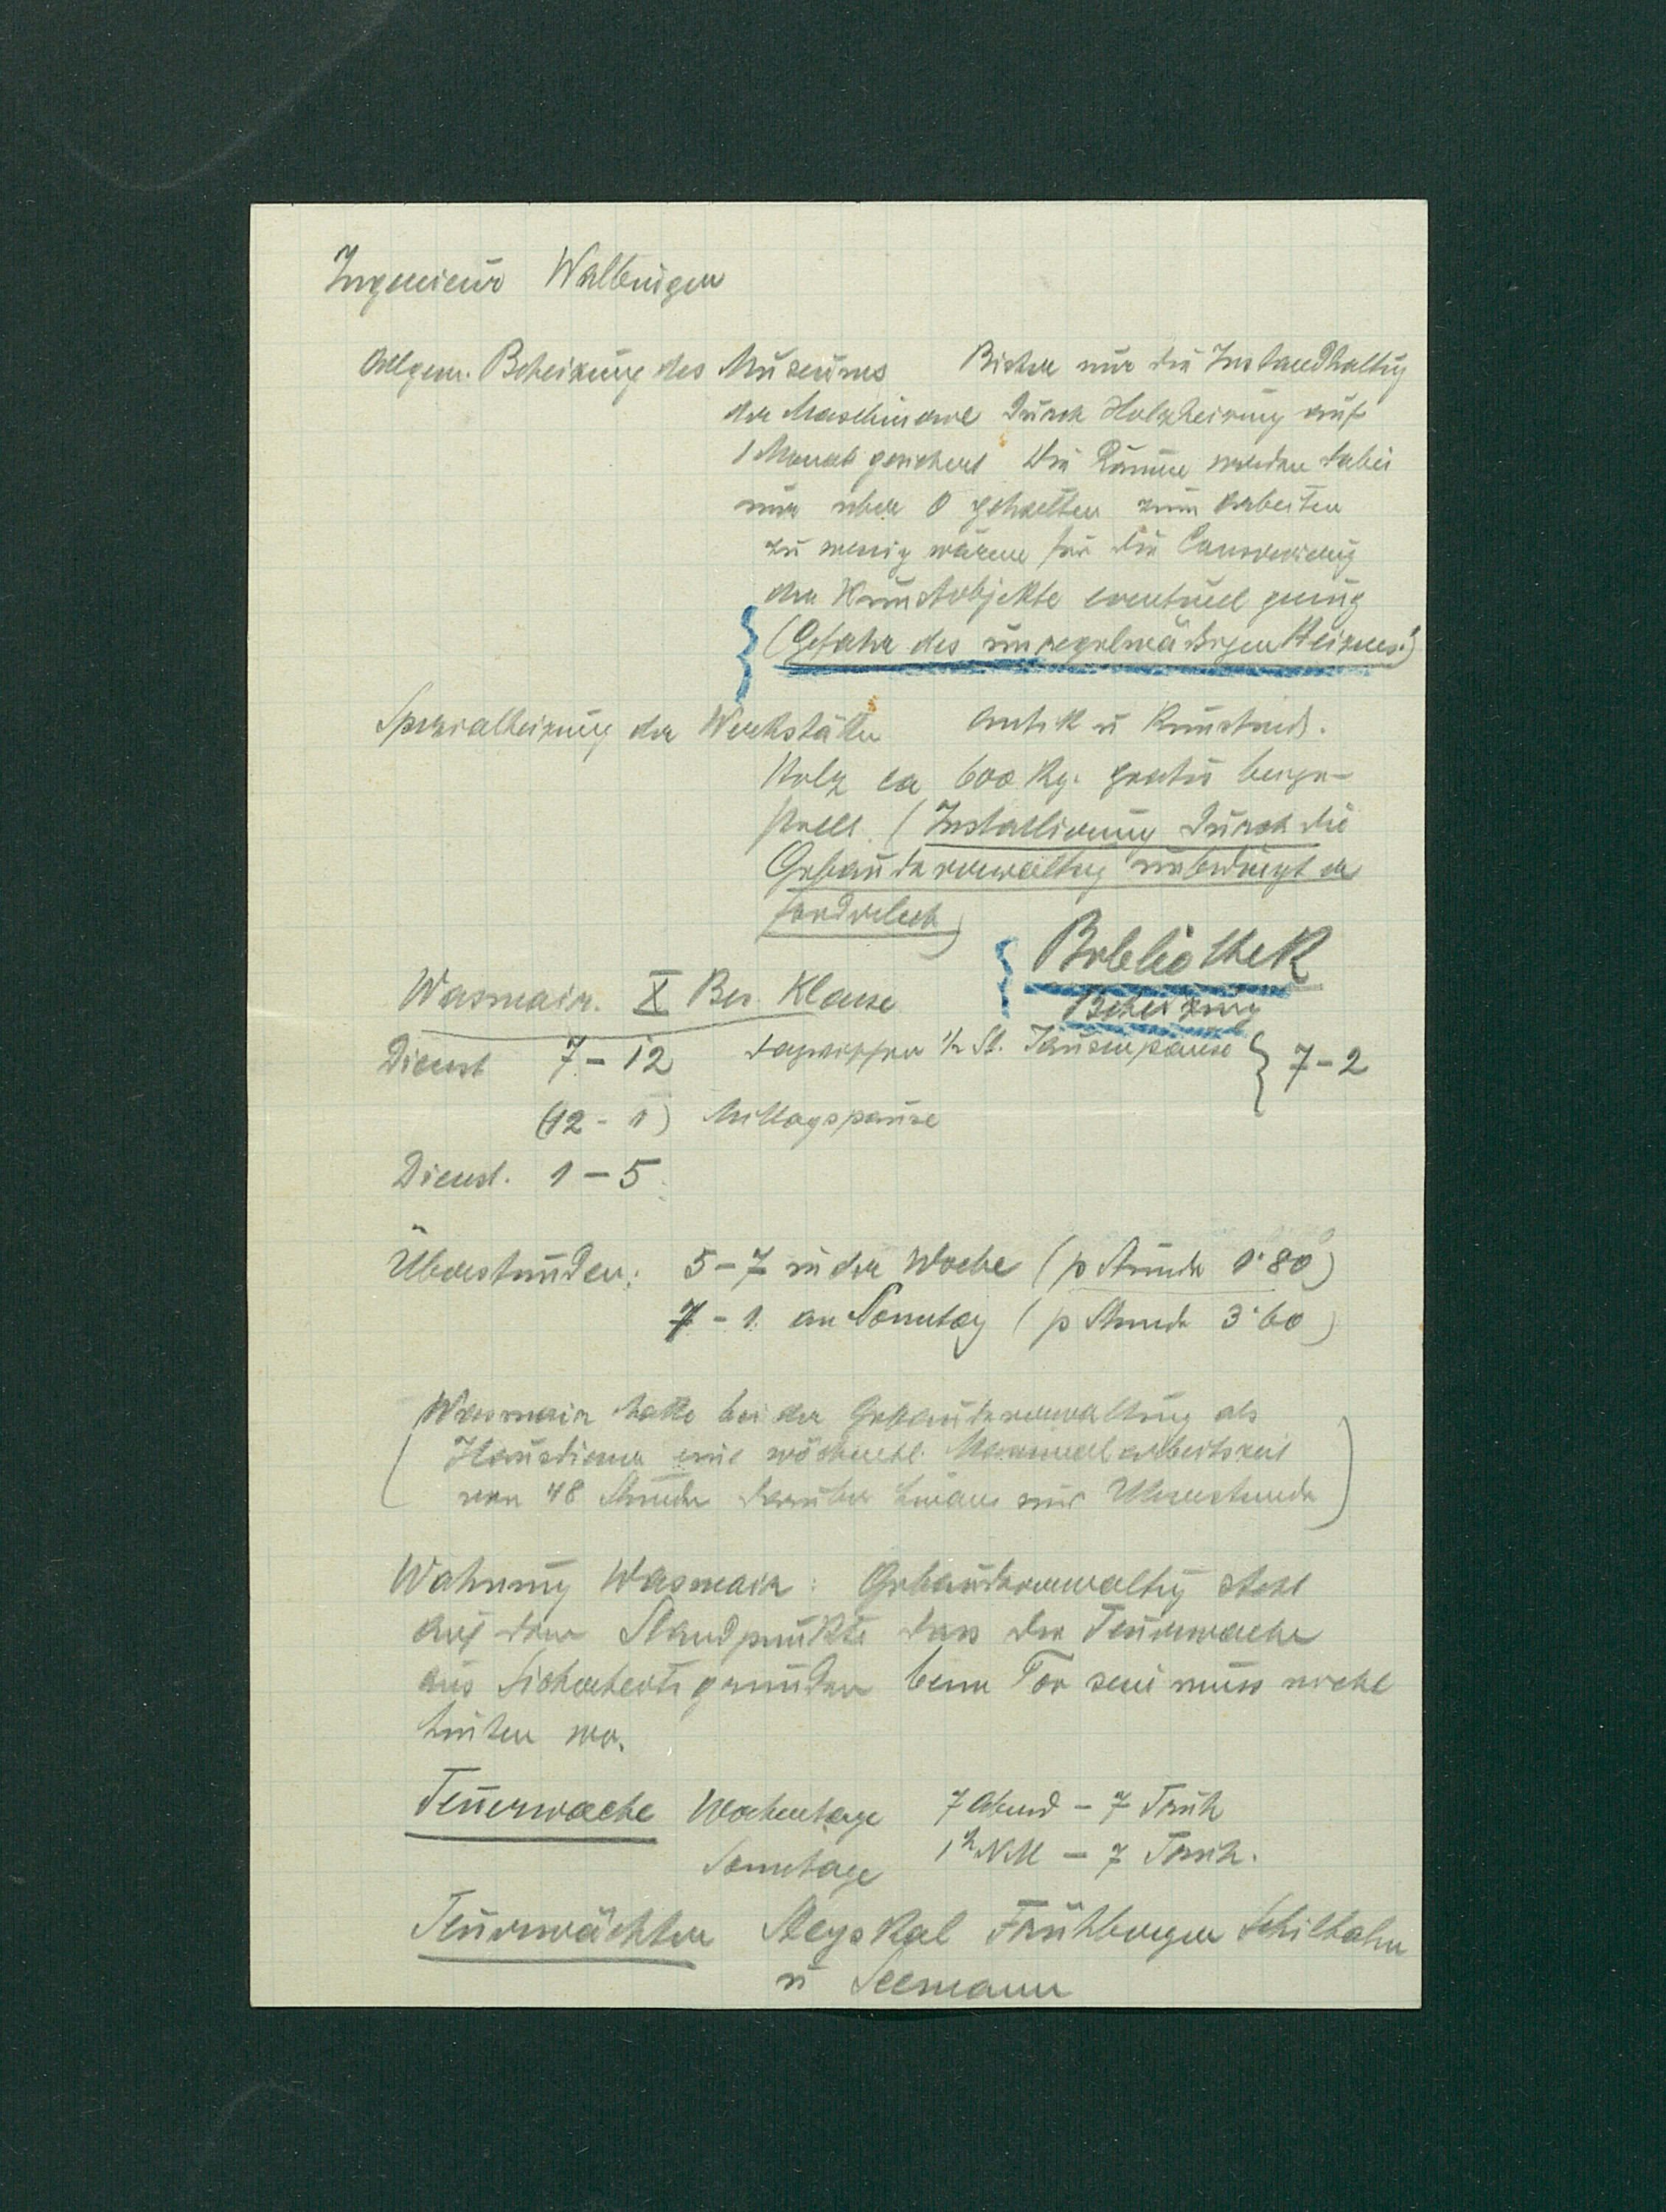 Ingenieur Walbinger
Allgem. Beheizung des Museums Bisher nur die Instandhaltung
der Maschinerie durch Holzheizung auf
1 Monat gesichert Die Räume werden dabei
nur über 0 gehalten zum Arbeiten
zu wenig wärme für die Conservierung
der Kunstobjekte eventuell genug
(Gefahr des unregelmäßigen Heizens!)
Spezialheizung der Werkstätten Antik u Kunstind.
Holz ca 600 Kg. gratis beige-
stellt. (Installierung durch die
Gebäudeverwaltung unbedingt er
forderlich)
Bibliothek
Beheizung
Wasmair. X Bes. Klasse
Dienst 7 – 12 dazwischen ½ St. Jausenpause } 7 – 2
(12 – 1) Mittagspause
Dienst. 1 – 5
Überstunden: 5 – 7 in der Woche (p Stunde 1·80)
7 – 1 an Sonntag (p Stunde 3·60)
(Wasmair hatte bei der Gebäudeverwaltung als
Hausdiener eine wöchentl. Maximalarbeitszeit
von 48 Stunden darüber hinaus nur Überstunden)
Wohnung Wasmair: Gebäudeverwaltung steht
auf dem Standpunkte dass die Feuerwache
aus Sicherheitsgründen beim Tor sein muss nicht
hinten wo.
Feuerwache Wochentage 7 Abend – 7 Früh
Sonntage 1h NM – 7 Früh.
Feuerwächter Steyskal Frühberger Schilhahn
u Seemann